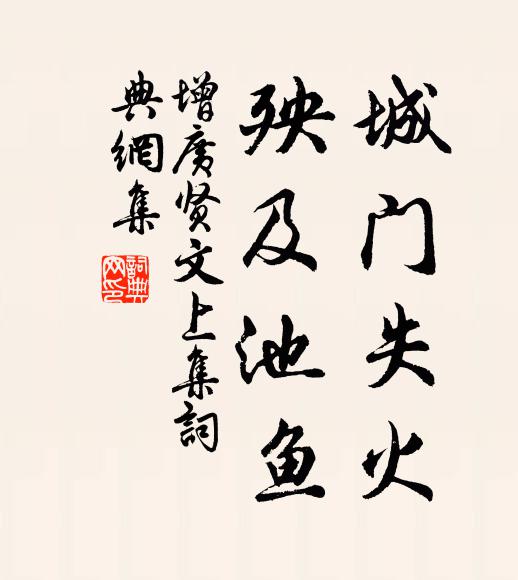 城门失火
殃及池鱼
增广贤文上集詞
典網集
詞典網印